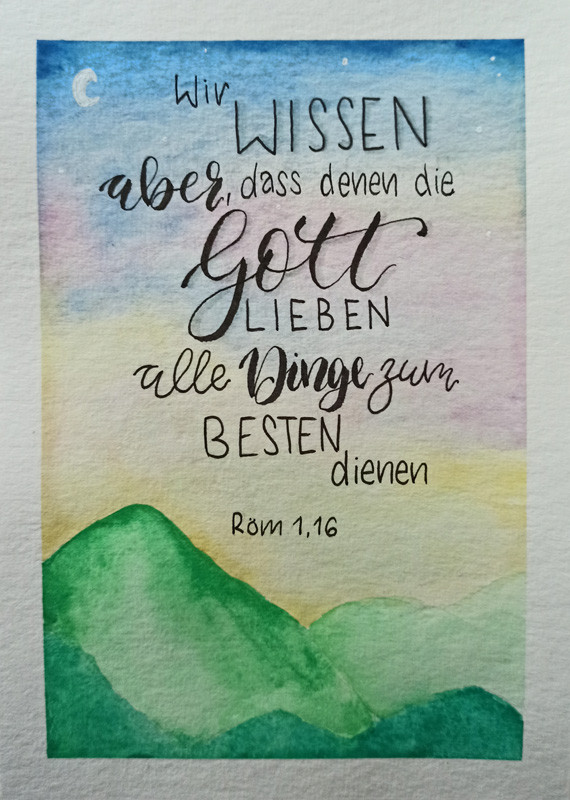 Wir
WISSEN
aber, dass denen die
Gott
LIEBEN
alle Dinge zum
BESTEN
dienen
Röm 1,16